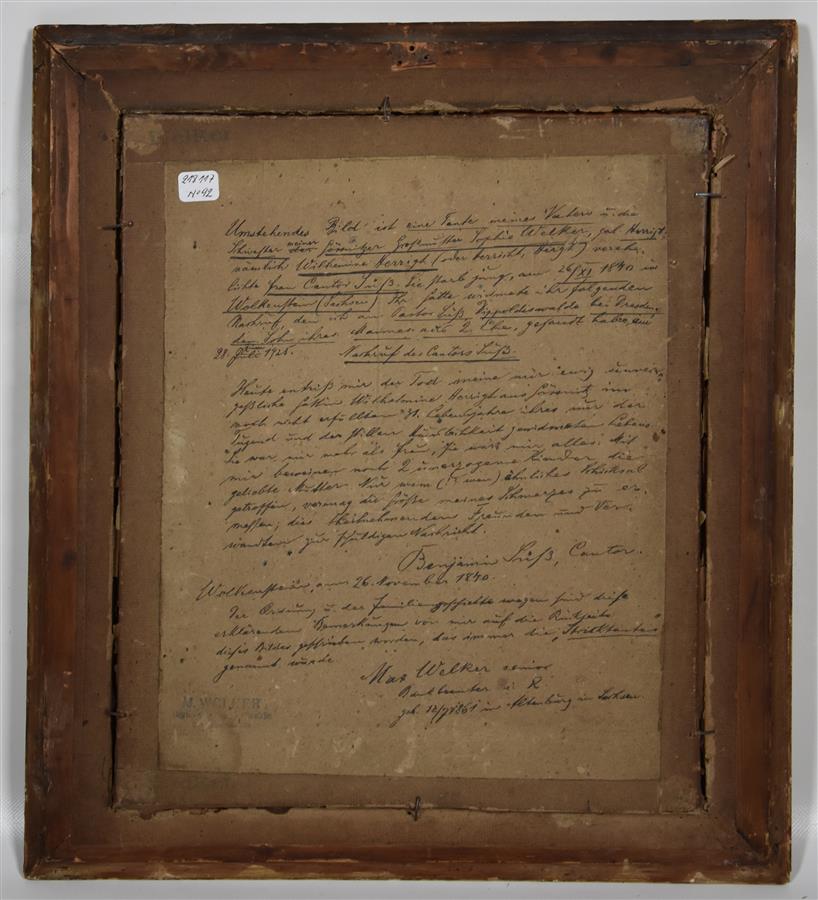 218117
N° 92
Umstehendes Bild ist eine Tante meines Vaters u. die
Schwester meiner Großmutter Sophie Welker, geb. Herrigt,
nämlich Wilhelmine Herrigt (oder Herricht, Hergt) verehe-
lichte Frau Cantor Süß. Sie starb jung, am 26/XI 1840 in
Wolkenstein (Sachsen) Ihr Gatte widmete ihr folgenden
Nachruf, den ich an Pastor Süß Dippoldiswalde bei Dresden,
dem Sohn ihres Mannes aus 2. Ehe, gesandt habe, am
28. Juli 1926.
Nachruf des Cantors Süß.
Heute entriß mir der Tod meine mir ewig unver-
geßliche Gattin Wilhelmine Herrigt aus im
noch nicht erfüllten 31. Lebensjahre ihres nur der
Tugend und der stillen Häuslichkeit gewidmeten Lebens.
Sie war mir mehr als Frau, Sie war mir alles! Mit
mir beweinen noch 2 unerzogene Kinder die
geliebte Mutter. Nur wem (wen) ähnliches Schicksal
getroffen, vermag die Größe meines Schmerzes zu er-
messen; dies theilnehmenden Freunden und Ver-
wandten zur schuldigen Nachricht.
Benjamin Süß, Cantor.
Wolkenstein, am 26. November 1840.
Der Ordnung u. der Familiengeschichte wegen sind diese
erklärenden Bemerkungen von mir auf die Rückseite
dieses Bildes geschrieben worden, das immer die "Stricktante"
genannt wurde
Max Welker senior
Bankbeamter i. R
geb. 12/7 1861 in Altenburg in Sachsen
M. WELKER